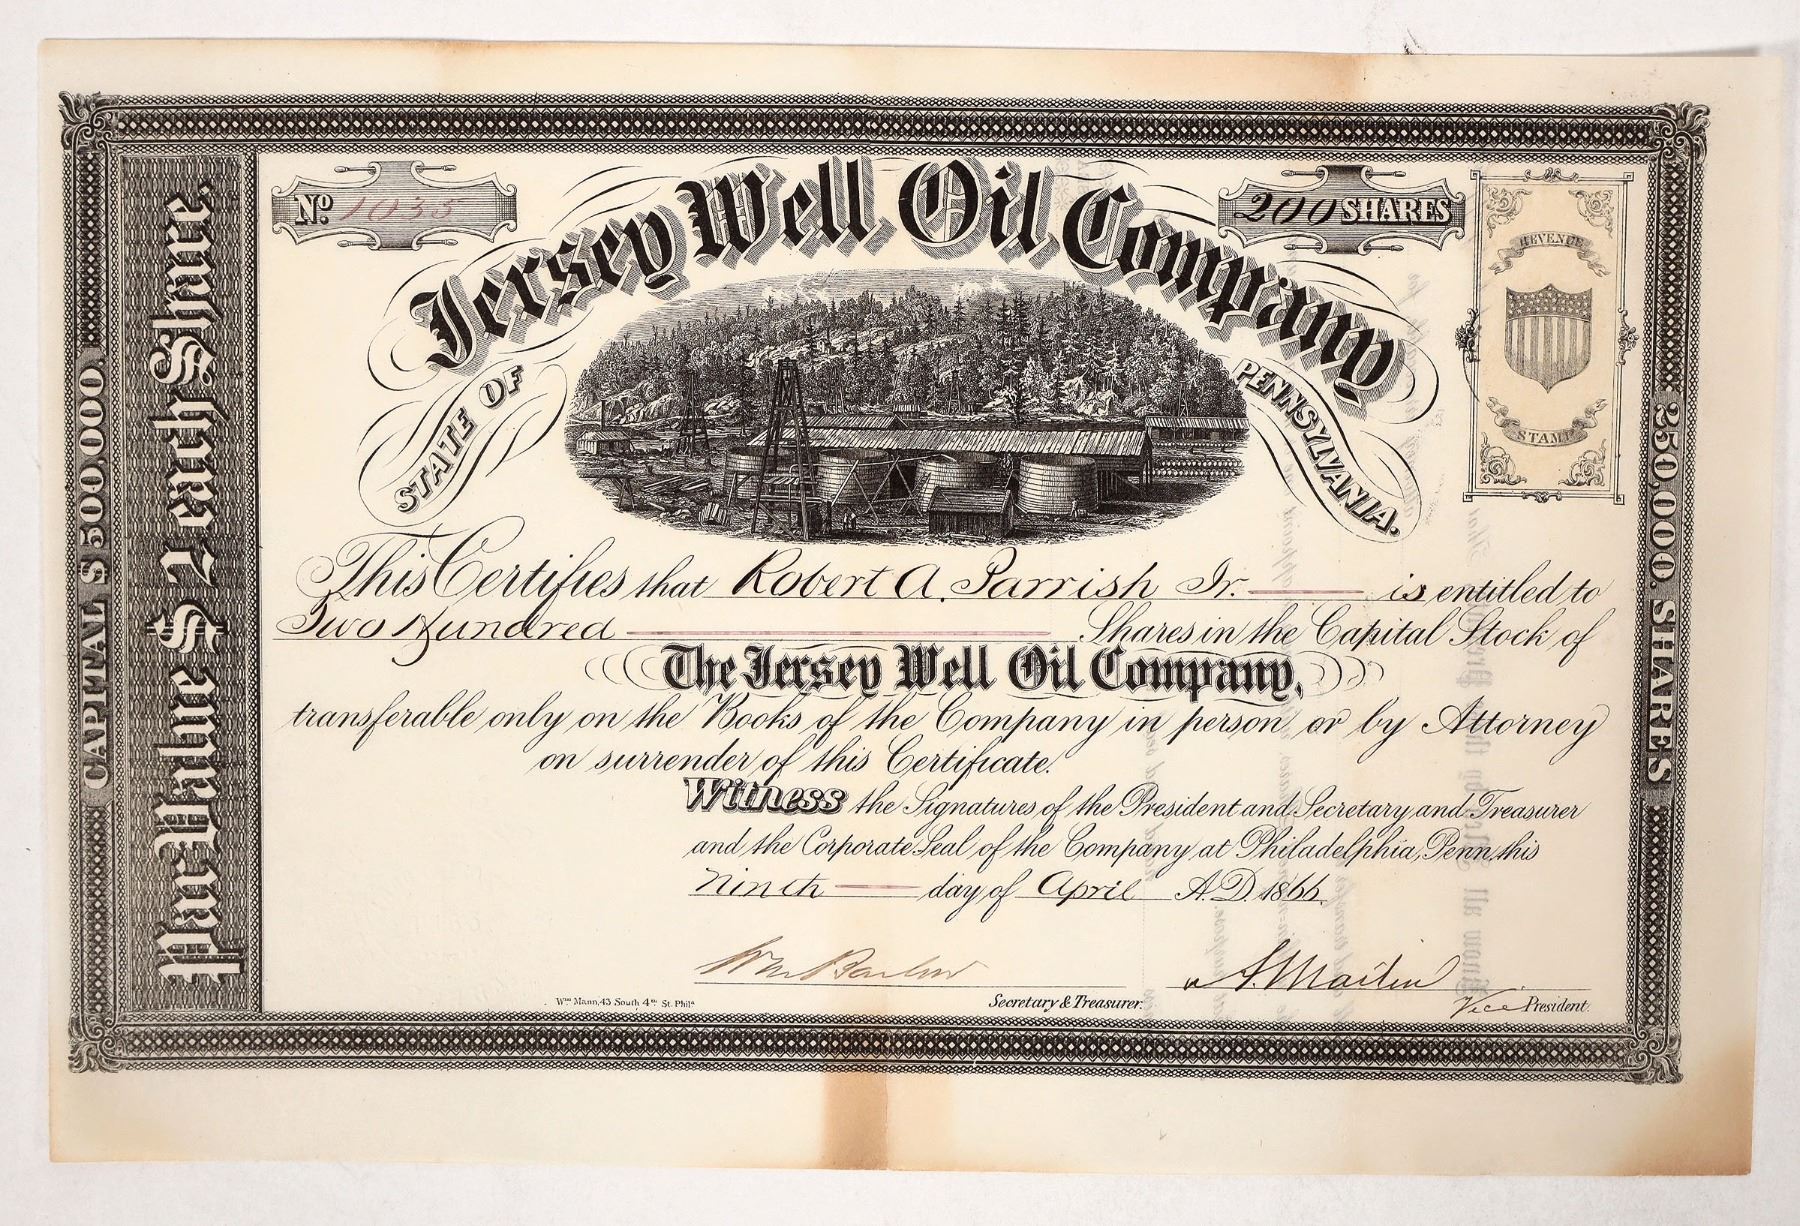 Nº 1035
Jersey Well Oil Company
200 SHARES
STATE OF PENNSYLVANIA.
REVENUE
STAMP
CAPITAL $ 500,000.
Par Value $ 2 each Share.
250,000. SHARES
This Certifies that Robert A. Parrish Jr. is entitled to
Two Hundred Shares in the Capital Stock of
The Jersey Well Oil Company,
transferable only on the Books of the Company in person or by Attorney
on surrender of this Certificate.
Witness the Signatures of the President and Secretary and Treasurer
and the Corporate Seal of the Company at Philadelphia, Penn, this
Ninth day of April A.D. 1866.
Wm Barlow
S. Martin
Wm Mann, 43 South 4th St. Phila
Secretary & Treasurer.
Vice President.